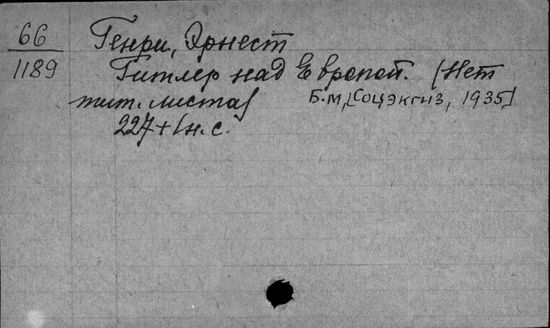 66
1189
Генри, Эрнест
Гитлер над Европой. [Нет
тит. листа]
Б.м, [Соцэкгиз, 1935]
227+1н.с.